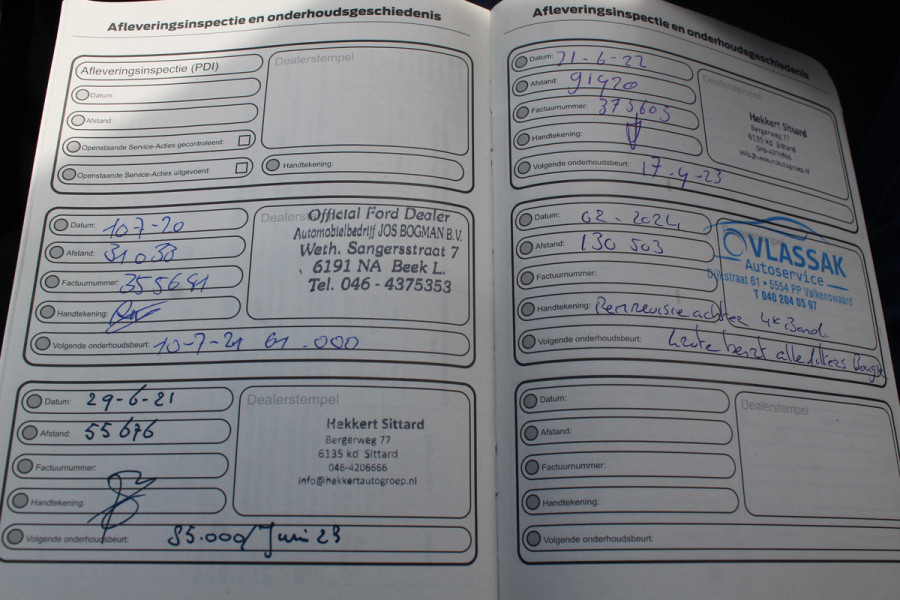 Afleveringsinspectie en onderhoudsgeschiedenis
Afleveringsinspectie (PDI)
Datum:
Afstand:
Openstaande Service-Acties gecontroleerd:
Openstaande Service-Acties uitgevoerd:
Dealerstempel
Handtekening:
Datum: 10-7-20
Afstand: 31038
Factuurnummer: 355691
Handtekening:
Volgende onderhoudsbeurt: 10-7-21 61.000
Dealerstempel
Official Ford Dealer
Automobielbedrijf JOS BOGMAN B.V.
Weth. Sangersstraat 7
6191 NA Beek L.
Tel. 046 - 4375353
Datum: 29-6-21
Afstand: 55676
Factuurnummer:
Handtekening:
Volgende onderhoudsbeurt: 85.000/Juni 23
Dealerstempel
Hekkert Sittard
Bergerweg 77
6135 kd Sittard
046-4206666
info@hekkertautogroep.nl
Afleveringsinspectie en onderhoudsgeschiedenis
Datum: 21-6-22
Afstand: 91920
Factuurnummer: 375603
Handtekening:
Volgende onderhoudsbeurt: 17-4-23
Dealerstempel
Hekkert Sittard
Bergerweg 77
6135 kd Sittard
046-4206666
info@hekkertautogroep.nl
Datum: 02-2024
Afstand: 130 503
Factuurnummer:
Handtekening: Remrevisie achter 4x Band.
Volgende onderhoudsbeurt: Grote beurt alle filters Bougi
VLASSAK
Autoservice
Dijkstraat 61 • 5554 PP Valkenswaard
T 040 204 05 97
Datum:
Afstand:
Factuurnummer:
Handtekening:
Volgende onderhoudsbeurt:
Dealerstempel